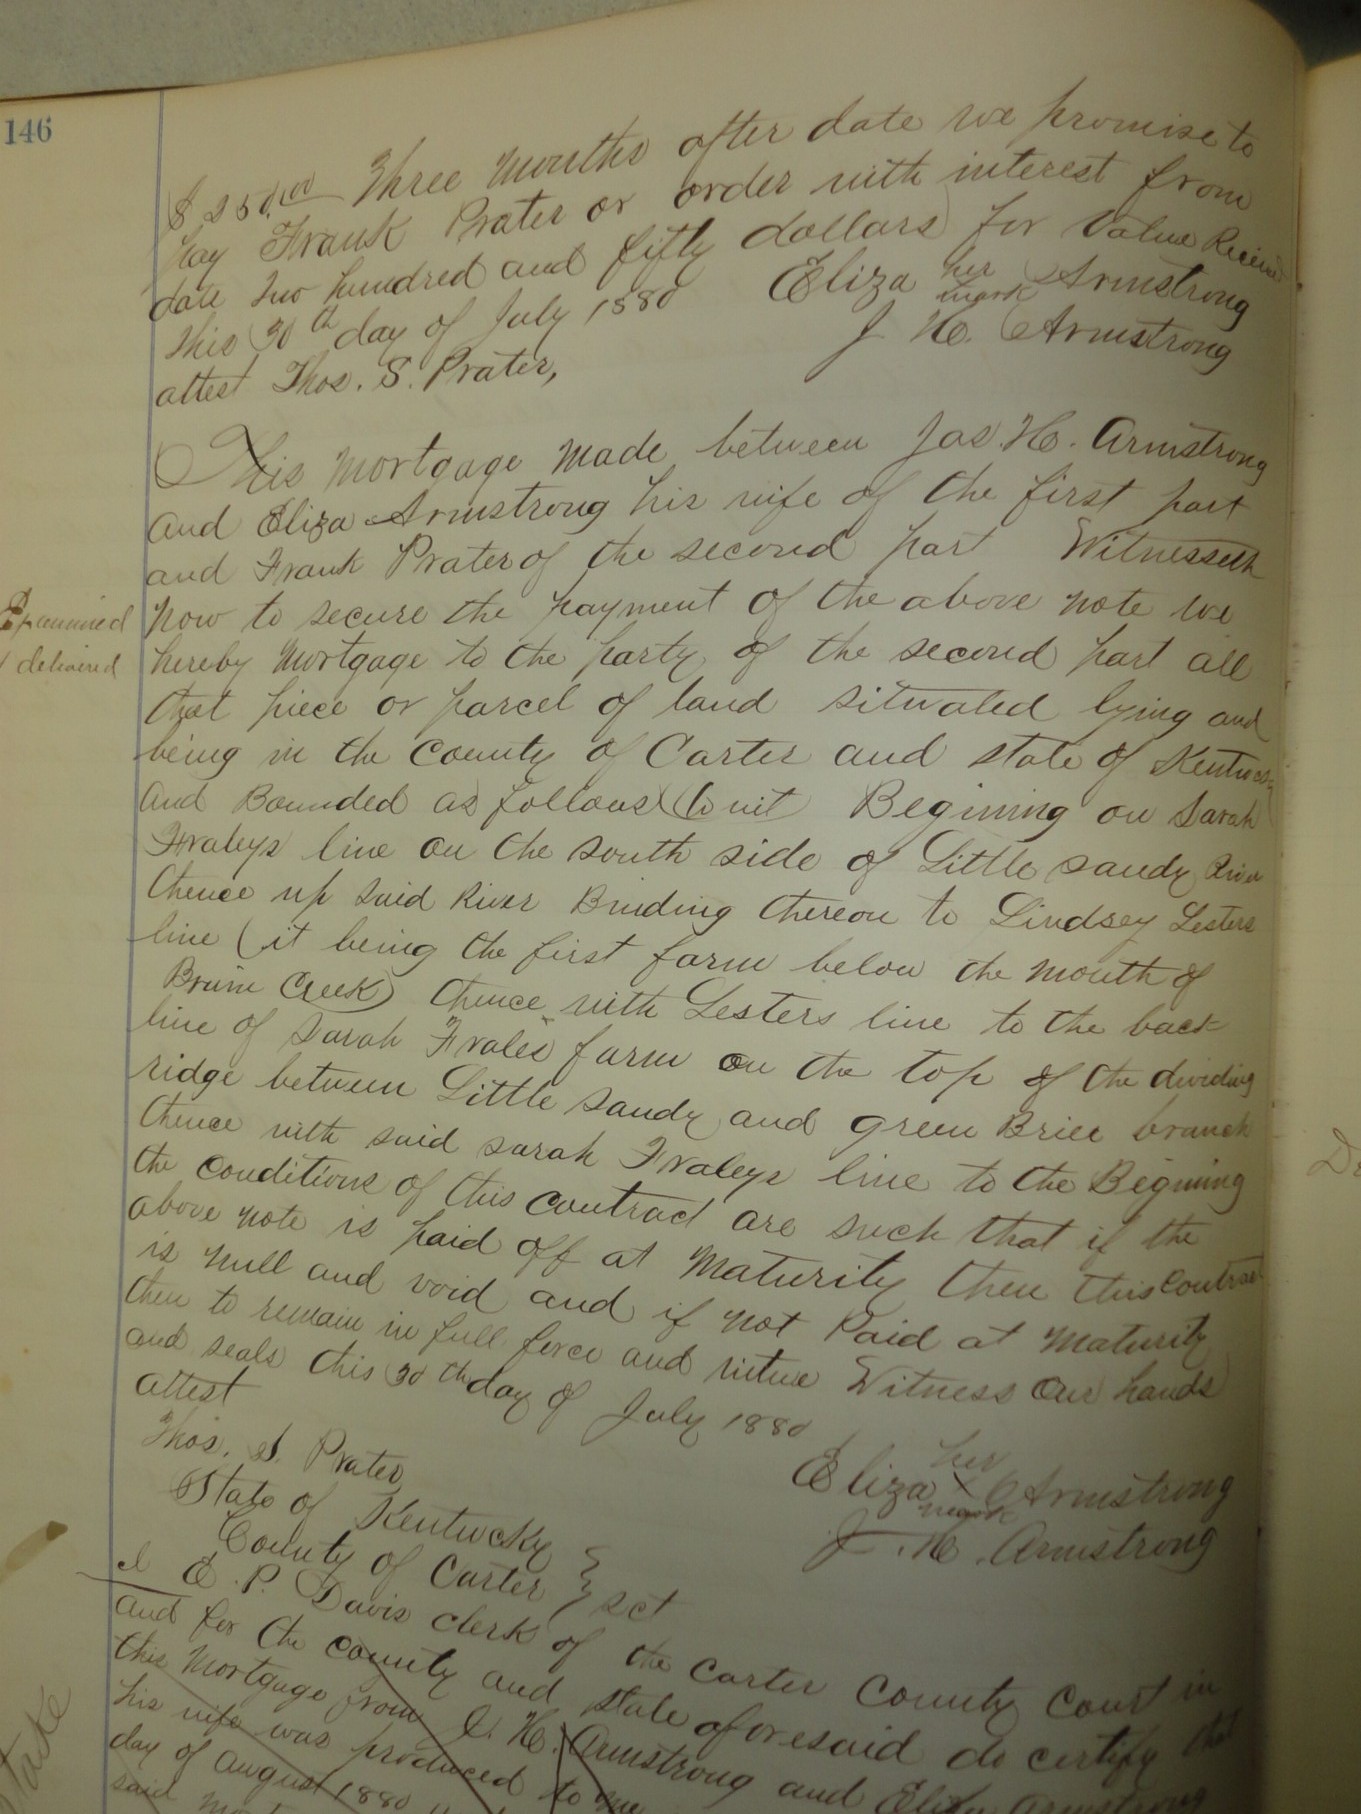 146
$250.00 Three Months after date we promise to
pay Frank Prater or order with interest from
date two hundred and fifty dollars for Value Received
This 30th day of July 1880
Eliza her mark Armstrong
J. H. Armstrong
attest Thos. S. Prater,
This Mortgage Made between Jas. H. Armstrong
and Eliza Armstrong his wife of the first part
and Frank Prater of the second part Witnesseth
Now to secure the payment of the above note we
hereby Mortgage to the party of the second part all
that piece or parcel of land situated lying and
being in the County of Carter and state of Kentucky
And Bounded as follows to wit Begining on Sarah
Fraleys line on the south side of Little Sandy River
thence up said River Binding thereon to Lindsey Lesters
line (it being the first farm below the mouth of
Creek) thence with Lesters line to the back
line of Sarah Fralis farm on the top of the dividing
ridge between Little Sandy and green Brier branch
thence with said Sarah Fraleys line to the Begining
the conditions of this contract are such that if the
above note is paid off at Maturity then this Contract
is Null and void and if Not Paid at Maturity
then to remain in full force and virtue Witness our hands
and seals this 30th day of July 1880
attest
Thos. S. Prater
Eliza her x mark Armstrong
J. H. Armstrong
State of Kentucky
County of Carter } sct
I C. P. Davis clerk of the Carter County Court in
and for the county and state aforesaid do certify that
this Mortgage from J. H. Armstrong and Eliza Armstrong
his wife was produced to me
day of August 1880
said
Examined
delivered